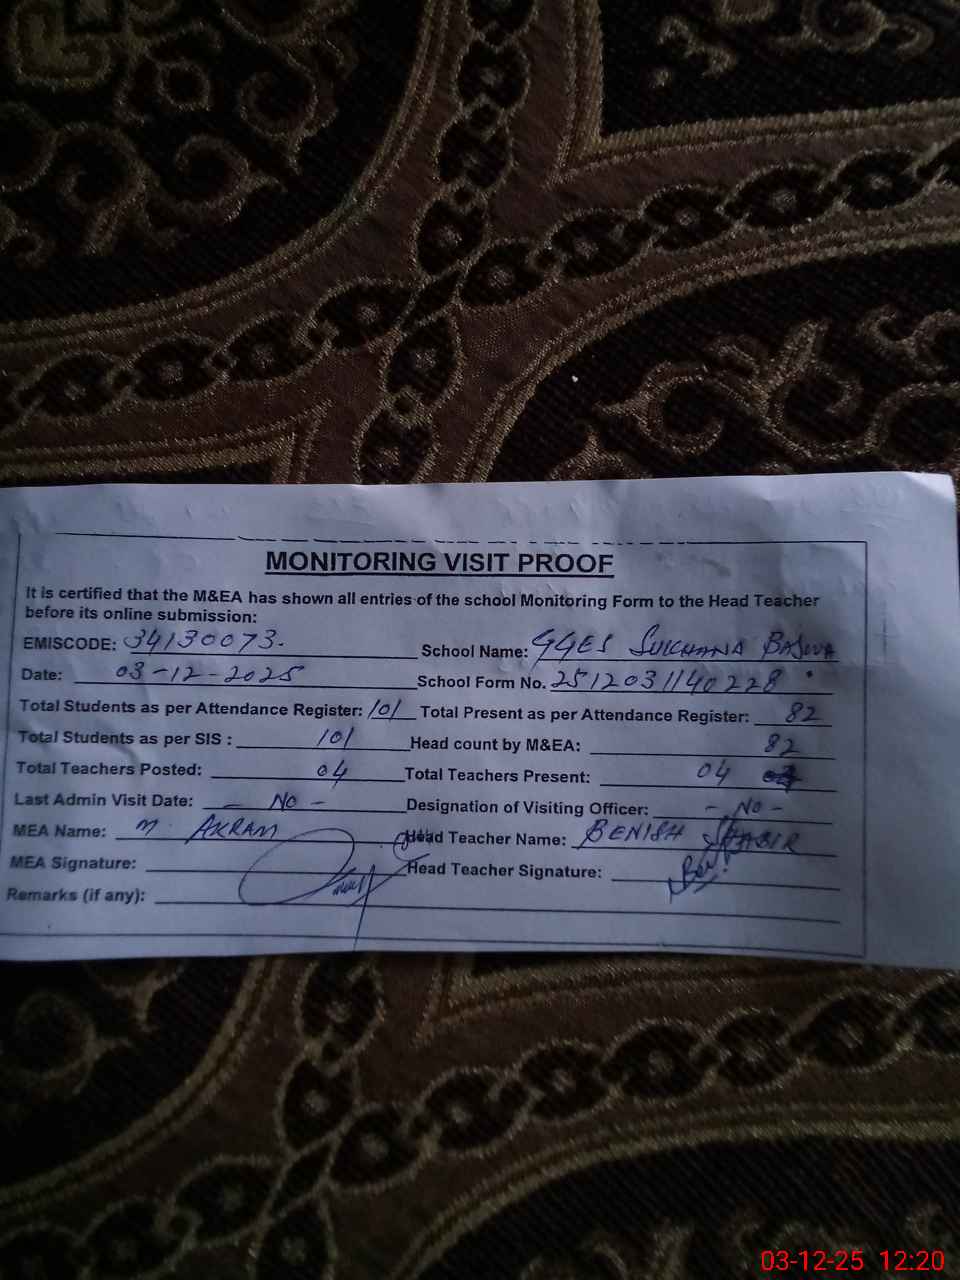 MONITORING VISIT PROOF
It is certified that the M&EA has shown all entries of the school Monitoring Form to the Head Teacher
before its online submission:
EMISCODE: 34130073. School Name: GGES SUKHANA BAJWA
Date: 03-12-2025 School Form No. 2512031140228
Total Students as per Attendance Register: 101 Total Present as per Attendance Register: 82
Total Students as per SIS : 101 Head count by M&EA: 82
Total Teachers Posted: 04 Total Teachers Present: 04
Last Admin Visit Date: - NO - Designation of Visiting Officer: - NO -
MEA Name: M. AKRAM Head Teacher Name: BENISH SHABIR
MEA Signature: Head Teacher Signature:
Remarks (if any):
03-12-25 12:20